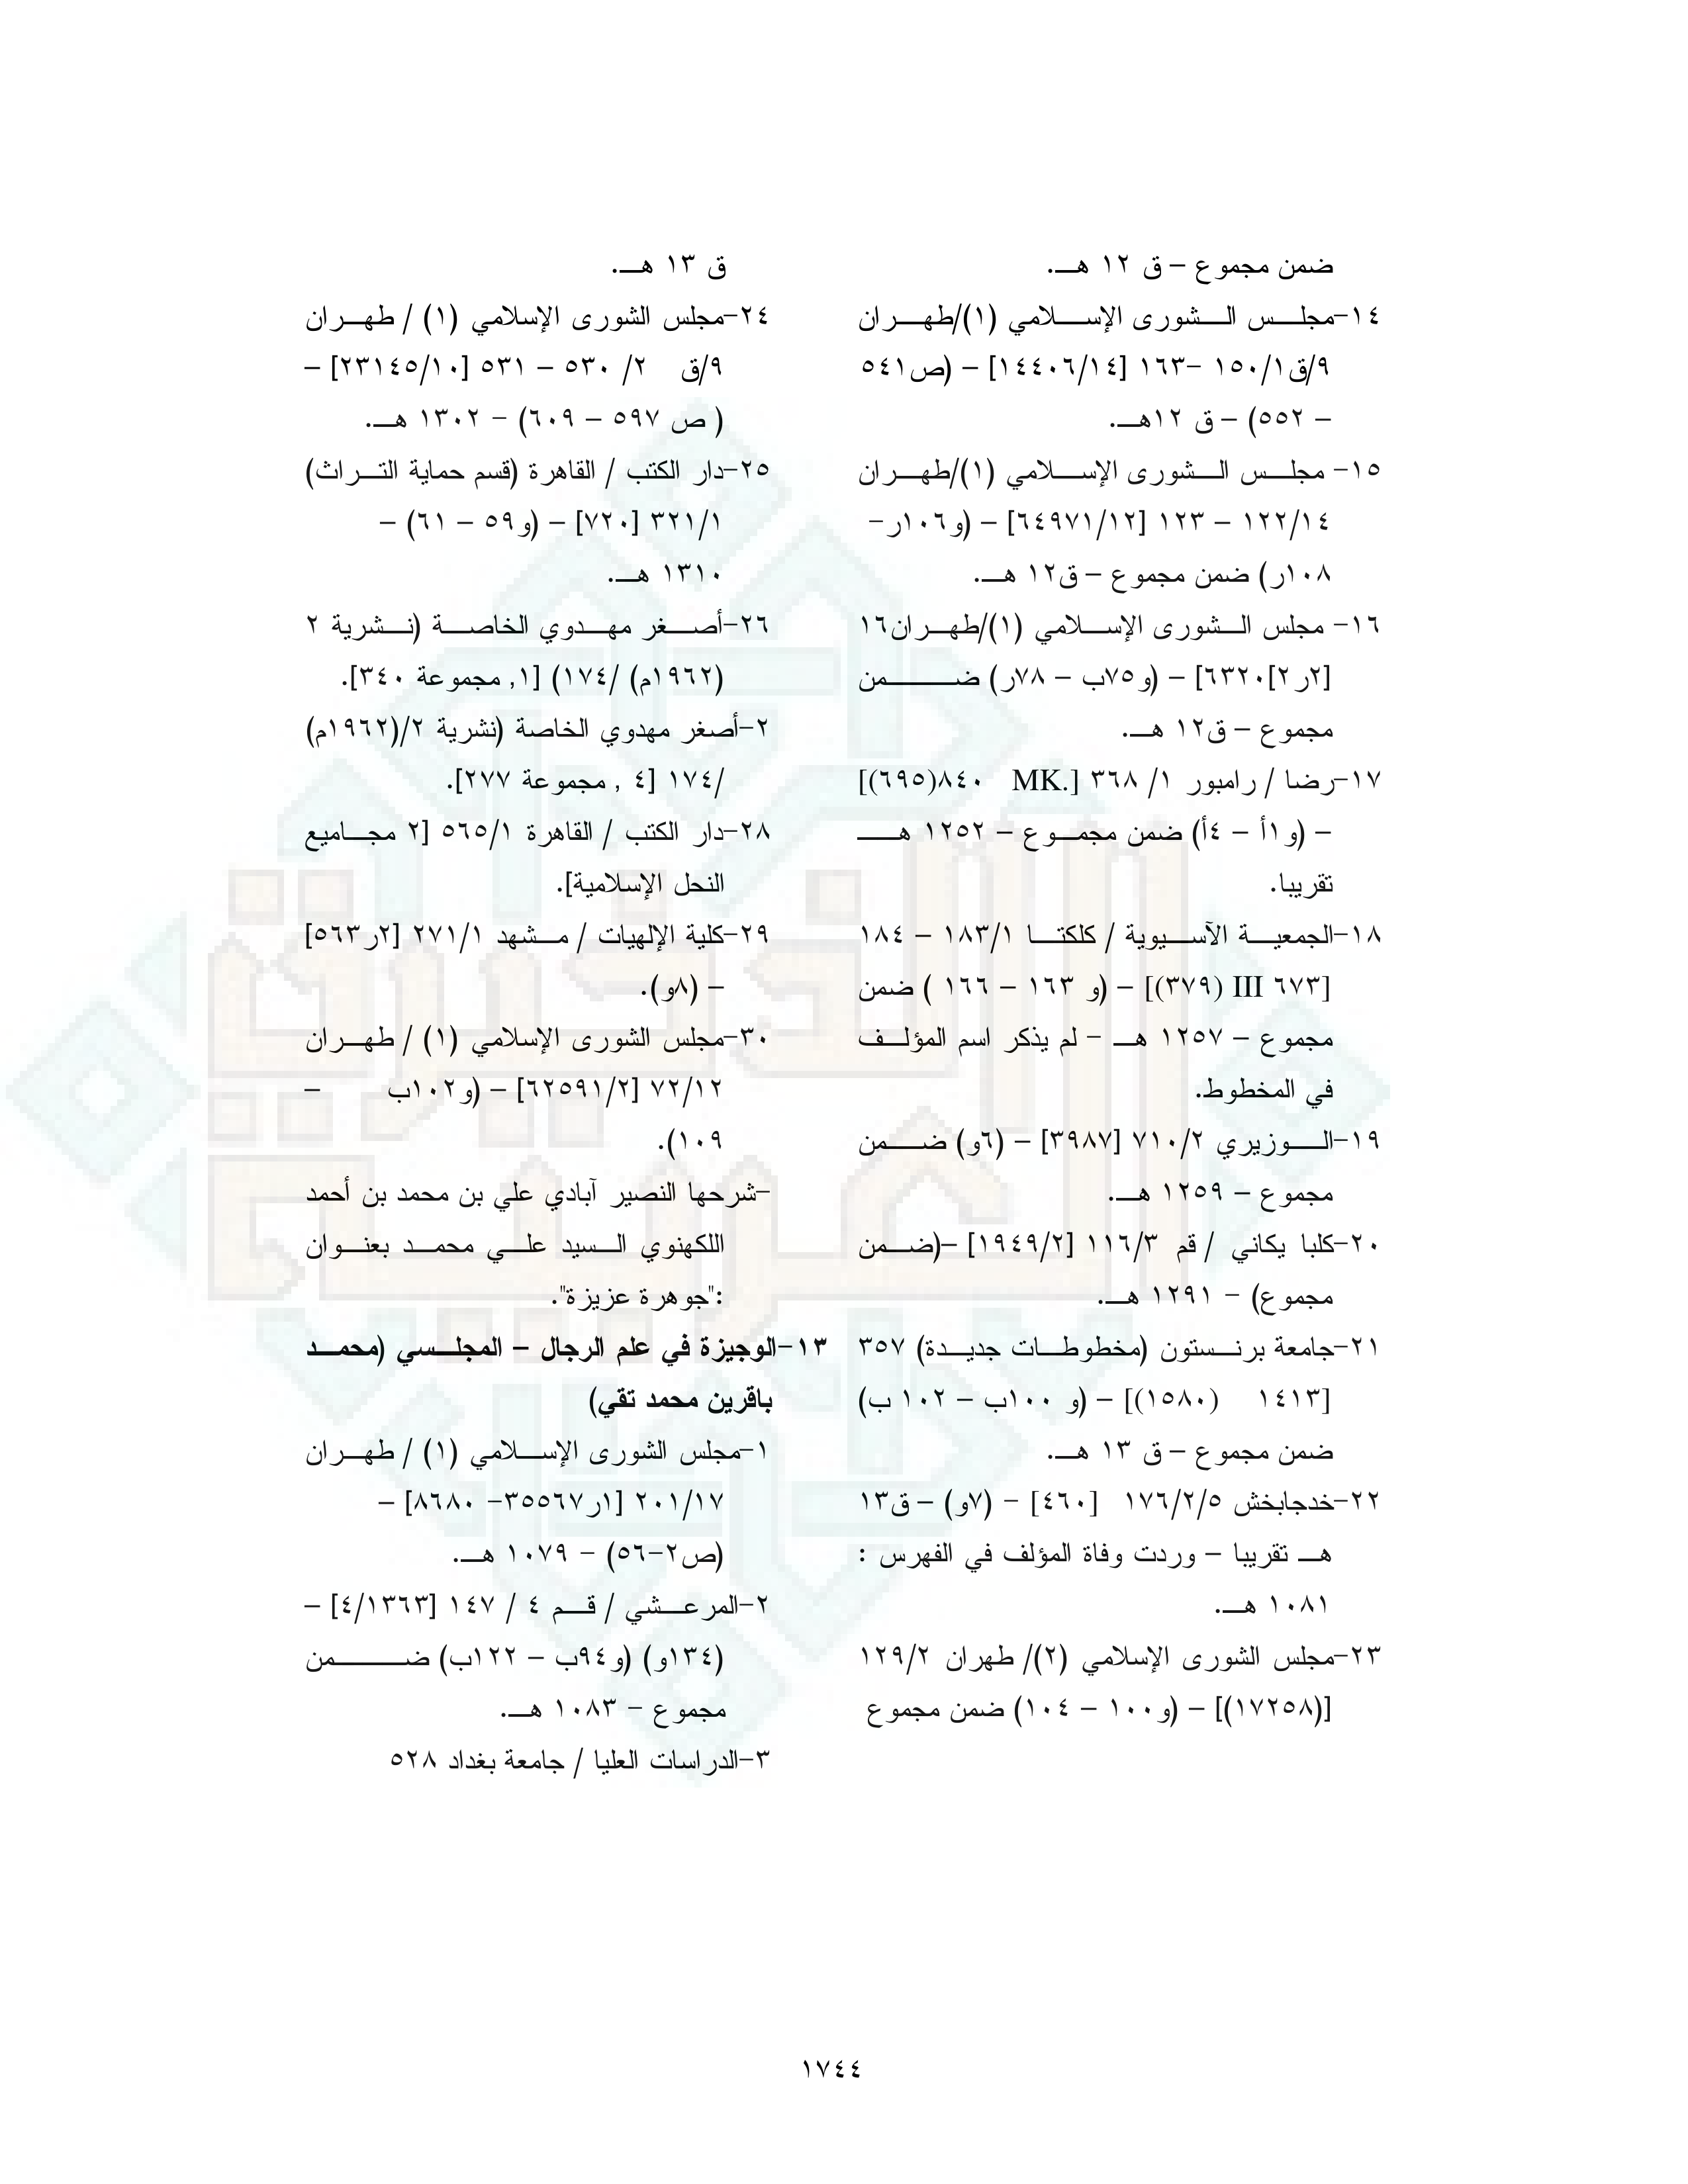 ضمن مجموع – ق ١٢ هـ.
١٤-مجلس الشورى الإسلامي (١)/طهران
٩/ق١/١٥٠ –١٦٣ [١٤٤٠٦/١٤] – (ص٥٤١
– ٥٥٢) – ق ١٢هـ.
١٥- مجلس الشورى الإسلامي (١)/طهران
١٢٢/١٤ – ١٢٣ [٦٤٩٧١/١٢] – (و١٠٦ر-
١٠٨ر) ضمن مجموع – ق١٢ هـ.
١٦- مجلس الشورى الإسلامي (١)/طهران١٦
[٢ر٢]٦٣٢٠] – (و٧٥ب – ٧٨ر) ضمن
مجموع – ق١٢ هـ.
١٧-رضا / رامبور ١/ ٣٦٨ [.MK ٨٤٠(٦٩٥)]
– (و١أ – ٤أ) ضمن مجموع – ١٢٥٢ هـ
تقريبا.
١٨-الجمعية الآسيوية / كلكتا ١٨٣/١ – ١٨٤
[٦٧٣ III (٣٧٩)] – (و ١٦٣ – ١٦٦ ) ضمن
مجموع – ١٢٥٧ هـ - لم يذكر اسم المؤلف
في المخطوط.
١٩-الوزيري ٧١٠/٢ [٣٩٨٧] – (٦و) ضمن
مجموع – ١٢٥٩ هـ.
٢٠-كلبا يكاني / قم ١١٦/٣ [١٩٤٩/٢] –(ضمن
مجموع) - ١٢٩١ هـ.
٢١-جامعة برنستون (مخطوطات جديدة) ٣٥٧
[١٤١٣ (١٥٨٠)] – (و ١٠٠ب – ١٠٢ ب)
ضمن مجموع – ق ١٣ هـ.
٢٢-خدجابخش ١٧٦/٢/٥ [٤٦٠] - (٧و) – ق١٣
هـ تقريبا – وردت وفاة المؤلف في الفهرس :
١٠٨١ هـ.
٢٣-مجلس الشورى الإسلامي (٢)/ طهران ١٢٩/٢
[(١٧٢٥٨)] – (و١٠٠ – ١٠٤) ضمن مجموع
ق ١٣ هـ.
٢٤-مجلس الشورى الإسلامي (١) / طهران
٩/ق ٢/ ٥٣٠ – ٥٣١ [٢٣١٤٥/١٠] –
( ص ٥٩٧ – ٦٠٩) - ١٣٠٢ هـ.
٢٥-دار الكتب / القاهرة (قسم حماية التراث)
٣٢١/١ [٧٢٠] – (و٥٩ – ٦١) –
١٣١٠ هـ.
٢٦-أصغر مهدوي الخاصة (نشرية ٢
(١٩٦٢م) /١٧٤) [١, مجموعة ٣٤٠].
٢-أصغر مهدوي الخاصة (نشرية ٢/(١٩٦٢م)
/١٧٤ [٤ , مجموعة ٢٧٧].
٢٨-دار الكتب / القاهرة ٥٦٥/١ [٢ مجاميع
النحل الإسلامية].
٢٩-كلية الإلهيات / مشهد ٢٧١/١ [٢ر٥٦٣]
– (٨و).
٣٠-مجلس الشورى الإسلامي (١) / طهران
٧٢/١٢ [٦٢٥٩١/٢] – (و١٠٢ب –
١٠٩).
-شرحها النصير آبادي علي بن محمد بن أحمد
اللكهنوي السيد علي محمد بعنوان
:"جوهرة عزيزة".
١٣-الوجيزة في علم الرجال – المجلسي (محمد
باقرين محمد تقي)
١-مجلس الشورى الإسلامي (١) / طهران
٢٠١/١٧ [١ر٣٥٥٦٧- ٨٦٨٠] –
(ص٢-٥٦) - ١٠٧٩ هـ.
٢-المرعشي / قم ٤ / ١٤٧ [٤/١٣٦٣] –
(١٣٤و) (و٩٤ب – ١٢٢ب) ضمن
مجموع - ١٠٨٣ هـ.
٣-الدراسات العليا / جامعة بغداد ٥٢٨
١٧٤٤